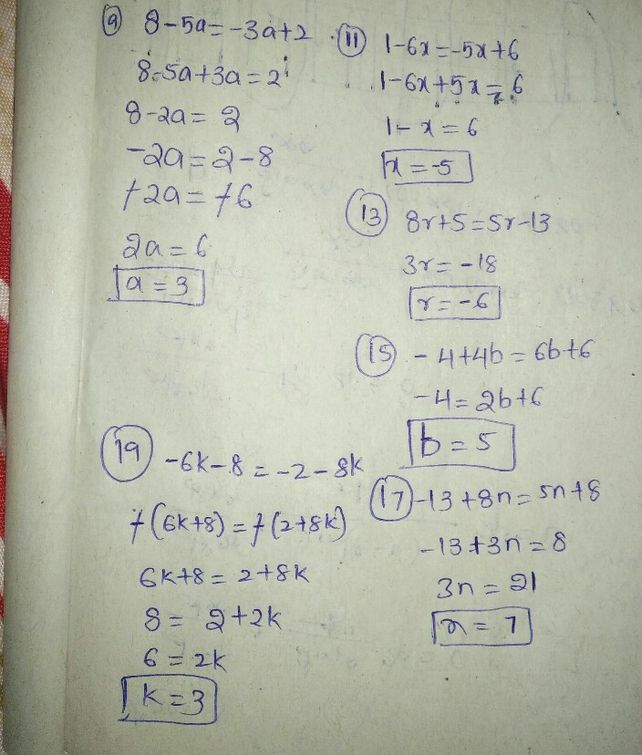 9 8-5a=-3a+2
8-5a+3a=2
8-2a=2
-2a=2-8
-2a=-6
2a=6
a=3
11 1-6x=-5x+6
1-6x+5x=6
1-x=6
x=-5
13 8r+5=5r-13
3r=-18
r=-6
15 -4+4b=6b+6
-4=2b+6
b=5
17 -13+8n=5n+8
-13+3n=8
3n=21
n=7
19 -6k-8=-2-8k
-(6k+8)=-(2+8k)
6k+8=2+8k
8=2+2k
6=2k
k=3